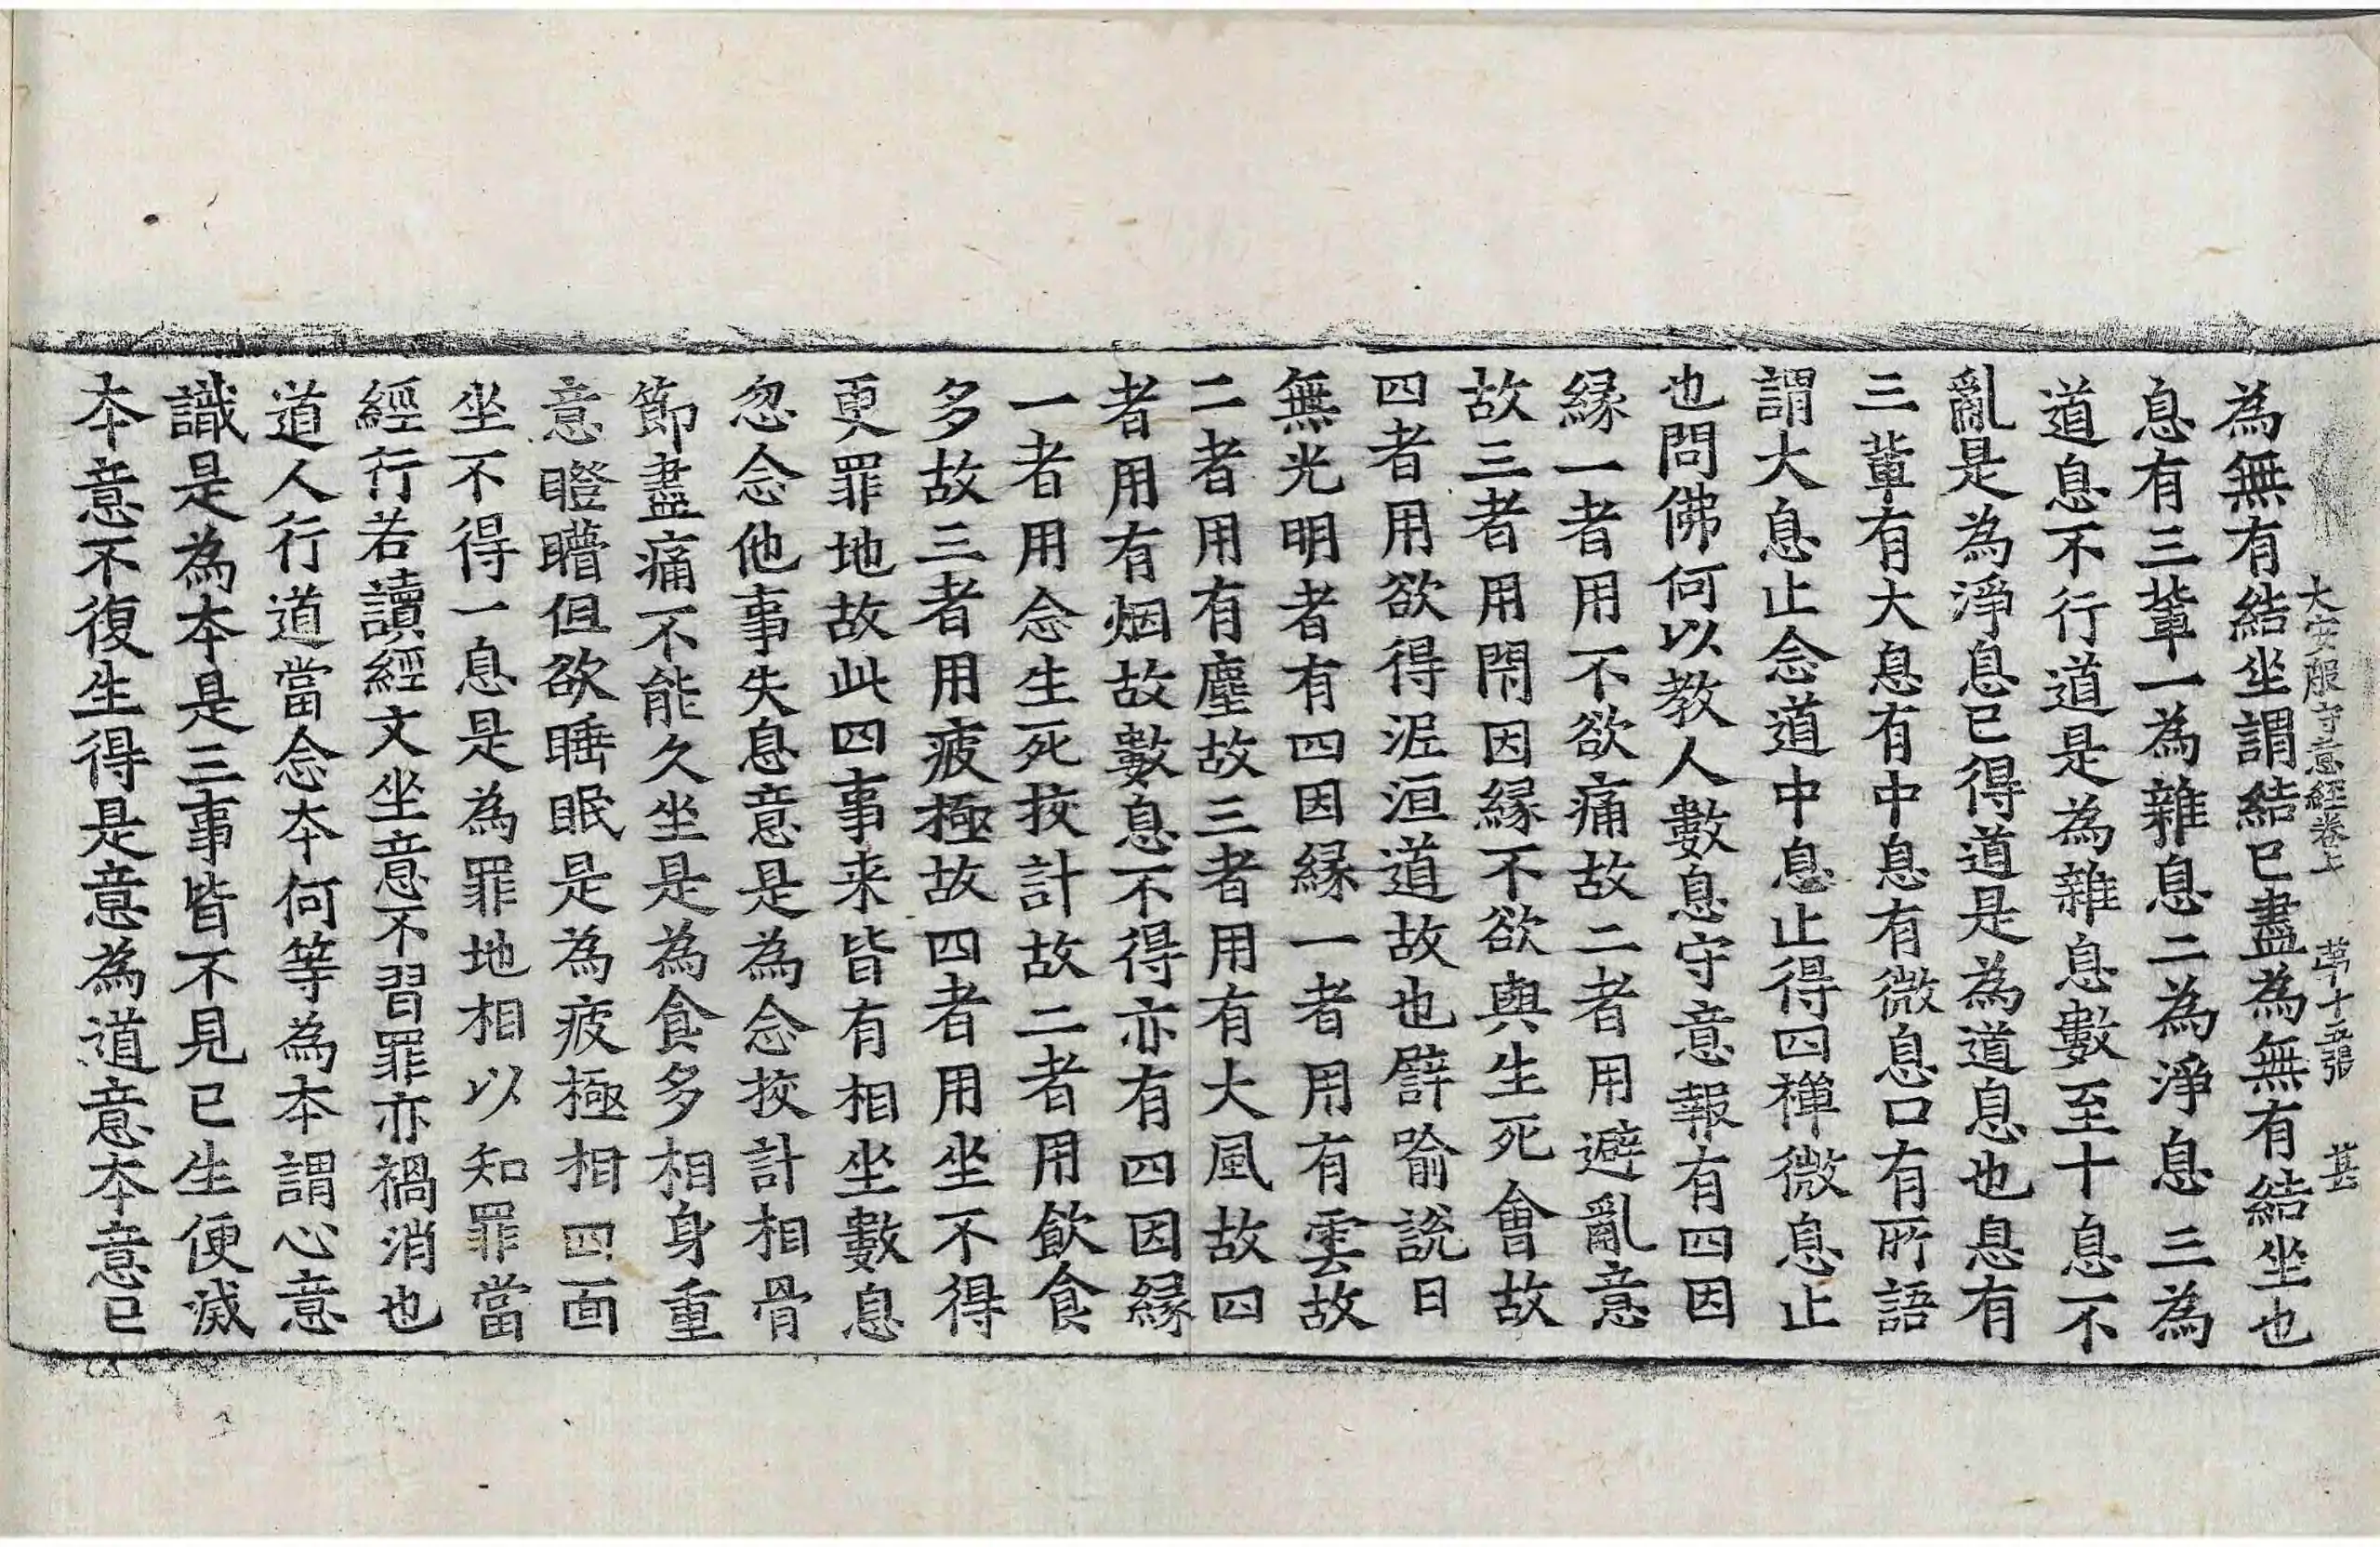 大安般守意經卷上 第十五張 甚
為無有結坐謂結已盡為無有結坐也
息有三輩一為雜息二為淨息三為
道息不行道是為雜息數至十息不
亂是為淨息已得道是為道息也息有
三輩有大息有中息有微息口有所語
謂大息止念道中息止得四禪微息止
也問佛何以教人數息守意報有四因
緣一者用不欲痛故二者用避亂意
故三者用閇因緣不欲與生死會故
四者用欲得泥洹道故也譬喻說日
無光明者有四因緣一者用有雲故
二者用有塵故三者用有大風故四
者用有烟故數息不得亦有四因緣
一者用念生死挍計故二者用飲食
多故三者用疲極故四者用坐不得
更罪地故此四事来皆有相坐數息
忽念他事失息意是為念挍計相骨
節盡痛不能久坐是為食多相身重
意瞪瞢但欲睡眠是為疲極相四面
坐不得一息是為罪地相以知罪當
經行若讀經文坐意不習罪亦禍消也
道人行道當念本何等為本謂心意
識是為本是三事皆不見已生便滅
本意不復生得是意為道意本意已